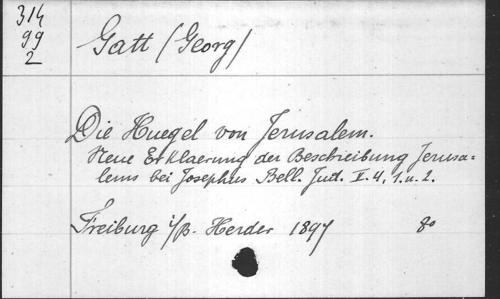 314
99
2
Gatt (Georg)
Die Huegel von Jerusalem.
Neue Erklaerung der Beschreibung Jerusa=
lems bei Josephus Bell. Jud. V. 4, 1. u. 2.
Freiburg i/B. Herder 1897 8o